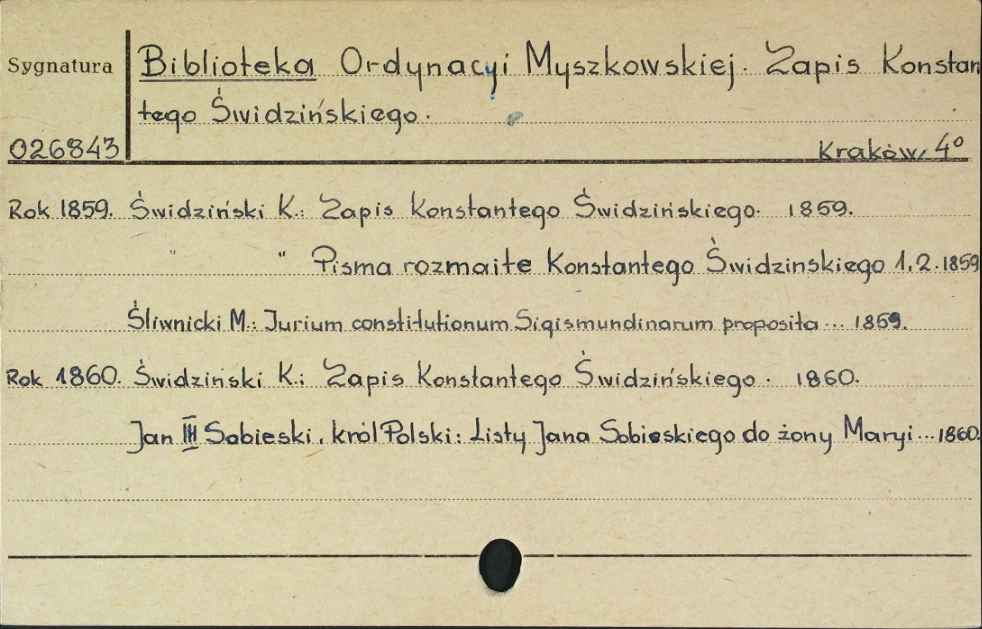 Sygnatura
Biblioteka Ordynacyi Myszkowskiej. Zapis Konstan
tego Świdzińskiego.
026843
Kraków, 4°
Rok 1859. Świdziński K.: Zapis Konstantego Świdzińskiego. 1859.
" " Pisma rozmaite Konstantego Świdzinskiego 1.2.1859
Śliwnicki M.: Jurium constitutionum Sigismundinarum proposita... 1859.
Rok 1860. Świdziński K.: Zapis Konstantego Świdzińskiego. 1860.
Jan III Sobieski, król Polski: Listy Jana Sobieskiego do żony Maryi... 1860.